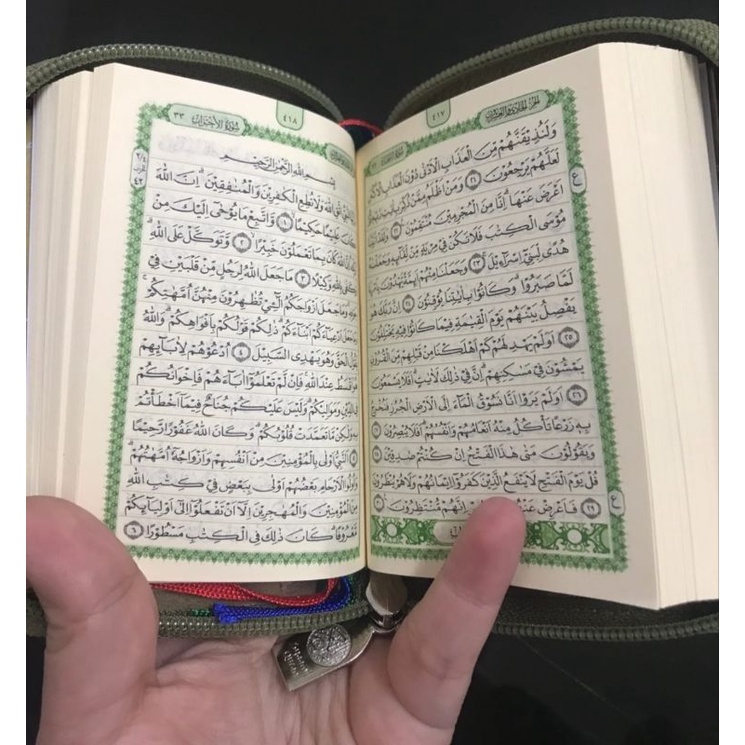 الجزء الحادي والعشرون
٤١٧
وَلَنُذِيقَنَّهُمْ مِنَ الْعَذَابِ الْأَدْنٰى دُونَ الْعَذَابِ الْأَكْبَرِ
لَعَلَّهُمْ يَرْجِعُونَ ﴿٢١﴾ وَمَنْ أَظْلَمُ مِمَّنْ ذُكِّرَ بِاٰيٰتِ رَبِّهِ ثُمَّ
أَعْرَضَ عَنْهَا ۚ إِنَّا مِنَ الْمُجْرِمِينَ مُنْتَقِمُونَ ﴿٢٢﴾ وَلَقَدْ اٰتَيْنَا
مُوسَى الْكِتٰبَ فَلَا تَكُنْ فِي مِرْيَةٍ مِنْ لِقَائِهِ وَجَعَلْنٰهُ
هُدًى لِبَنِي إِسْرَاءِيلَ ﴿٢٣﴾ وَجَعَلْنَا مِنْهُمْ أَئِمَّةً يَهْدُونَ بِأَمْرِنَا
لَمَّا صَبَرُوا ۖ وَكَانُوا بِاٰيٰتِنَا يُوقِنُونَ ﴿٢٤﴾ إِنَّ رَبَّكَ هُوَ
يَفْصِلُ بَيْنَهُمْ يَوْمَ الْقِيٰمَةِ فِيمَا كَانُوا فِيهِ يَخْتَلِفُونَ
﴿٢٥﴾ أَوَلَمْ يَهْدِ لَهُمْ كَمْ أَهْلَكْنَا مِنْ قَبْلِهِمْ مِنَ الْقُرُونِ
يَمْشُونَ فِي مَسٰكِنِهِمْ ۚ إِنَّ فِي ذٰلِكَ لَاٰيٰتٍ ۖ أَفَلَا يَسْمَعُونَ
﴿٢٦﴾ أَوَلَمْ يَرَوْا أَنَّا نَسُوقُ الْمَاءَ إِلَى الْأَرْضِ الْجُرُزِ فَنُخْرِجُ
بِهِ زَرْعًا تَأْكُلُ مِنْهُ أَنْعَامُهُمْ وَأَنْفُسُهُمْ ۖ أَفَلَا يُبْصِرُونَ ﴿٢٧﴾
وَيَقُولُونَ مَتٰى هٰذَا الْفَتْحُ إِنْ كُنْتُمْ صٰدِقِينَ ﴿٢٨﴾
قُلْ يَوْمَ الْفَتْحِ لَا يَنْفَعُ الَّذِينَ كَفَرُوا إِيمَانُهُمْ وَلَا هُمْ يُنْظَرُونَ
﴿٢٩﴾ فَأَعْرِضْ عَنْهُمْ إِنَّهُمْ مُنْتَظِرُونَ ﴿٣٠﴾
ع
ع
٤١٨
سُورَةُ الْأَحْزَابِ ٣٣
بِسْمِ اللّٰهِ الرَّحْمٰنِ الرَّحِيمِ
النَّبِيُّ اتَّقِ اللّٰهَ وَلَا تُطِعِ الْكٰفِرِينَ وَالْمُنٰفِقِينَ ۗ إِنَّ اللّٰهَ
كَانَ عَلِيمًا حَكِيمًا ﴿١﴾ وَاتَّبِعْ مَا يُوحٰى إِلَيْكَ مِنْ
رَبِّكَ ۚ إِنَّ اللّٰهَ كَانَ بِمَا تَعْمَلُونَ خَبِيرًا ﴿٢﴾ وَتَوَكَّلْ عَلَى اللّٰهِ ۚ
وَكَفٰى بِاللّٰهِ وَكِيلًا ﴿٣﴾ مَا جَعَلَ اللّٰهُ لِرَجُلٍ مِنْ قَلْبَيْنِ فِي
جَوْفِهِ ۚ وَمَا جَعَلَ أَزْوٰجَكُمُ الّٰئِي تُظٰهِرُونَ مِنْهُنَّ أُمَّهٰتِكُمْ ۚ
وَمَا جَعَلَ أَدْعِيَاءَكُمْ أَبْنَاءَكُمْ ۚ ذٰلِكُمْ قَوْلُكُمْ بِأَفْوٰهِكُمْ ۖ وَاللّٰهُ
يَقُولُ الْحَقَّ وَهُوَ يَهْدِي السَّبِيلَ ﴿٤﴾ ادْعُوهُمْ لِاٰبَائِهِمْ
هُوَ أَقْسَطُ عِنْدَ اللّٰهِ ۚ فَإِنْ لَمْ تَعْلَمُوا اٰبَاءَهُمْ فَإِخْوَانُكُمْ
فِي الدِّينِ وَمَوَالِيكُمْ ۚ وَلَيْسَ عَلَيْكُمْ جُنَاحٌ فِيمَا أَخْطَأْتُمْ
بِهِ وَلٰكِنْ مَا تَعَمَّدَتْ قُلُوبُكُمْ ۚ وَكَانَ اللّٰهُ غَفُورًا رَحِيمًا
﴿٥﴾ النَّبِيُّ أَوْلٰى بِالْمُؤْمِنِينَ مِنْ أَنْفُسِهِمْ ۖ وَأَزْوٰجُهُ أُمَّهٰتُهُمْ ۗ
وَأُولُوا الْأَرْحَامِ بَعْضُهُمْ أَوْلٰى بِبَعْضٍ فِي كِتٰبِ اللّٰهِ
مِنَ الْمُؤْمِنِينَ وَالْمُهٰجِرِينَ إِلَّا أَنْ تَفْعَلُوا إِلٰى أَوْلِيَائِكُمْ
مَعْرُوفًا ۚ كَانَ ذٰلِكَ فِي الْكِتٰبِ مَسْطُورًا ﴿٦﴾